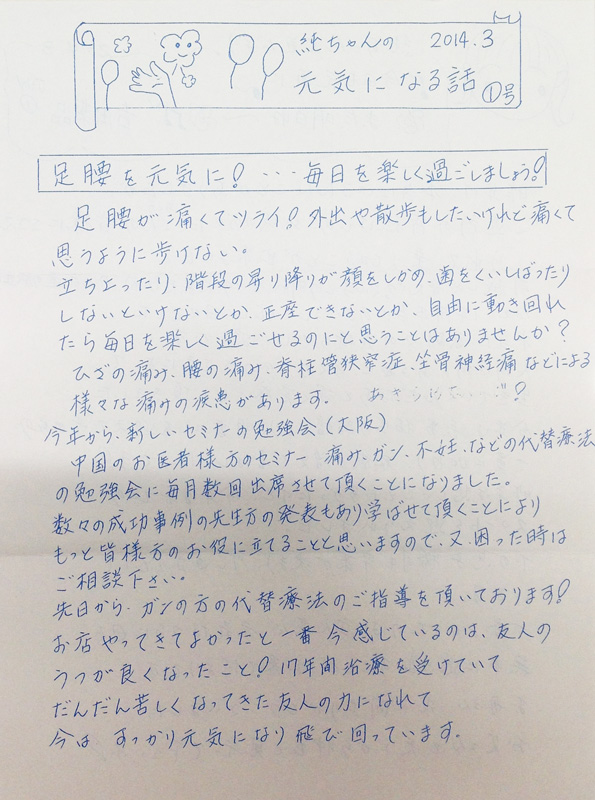 純ちゃんの 2014.3
元気になる話 ①号
足腰を元気に!…毎日を楽しく過ごしましょう!
足腰が痛くてツライ!外出や散歩もしたいけれど痛くて
思うように歩けない。
立ち上ったり、階段の昇り降りが顔をしかめ、歯をくいしばったり
しないといけないとか、正座できないとか、自由に動き回れ
たら毎日を楽しく過ごせるのにと思うことはありませんか?
ひざの痛み、腰の痛み、脊柱管狭窄症、坐骨神経痛などによる
様々な痛みの疾患があります。
今年から、新しいセミナーの勉強会(大阪)
中国のお医者様方のセミナー 痛み、ガン、不妊、などの代替療法
の勉強会に毎月数回出席させて頂くことになりました。
数々の成功事例の先生方の発表もあり学ばせて頂くことにより
もっと皆様方のお役に立てることと思いますので、又、困った時は
ご相談下さい。
先日から、ガンの方の代替療法のご指導を頂いております!
お店やってきてよかったと一番今感じているのは、友人の
うつが良くなったこと!17年間治療を受けていて
だんだん苦しくなってきた友人の力になれて
今は すっかり元気になり飛び回っています。